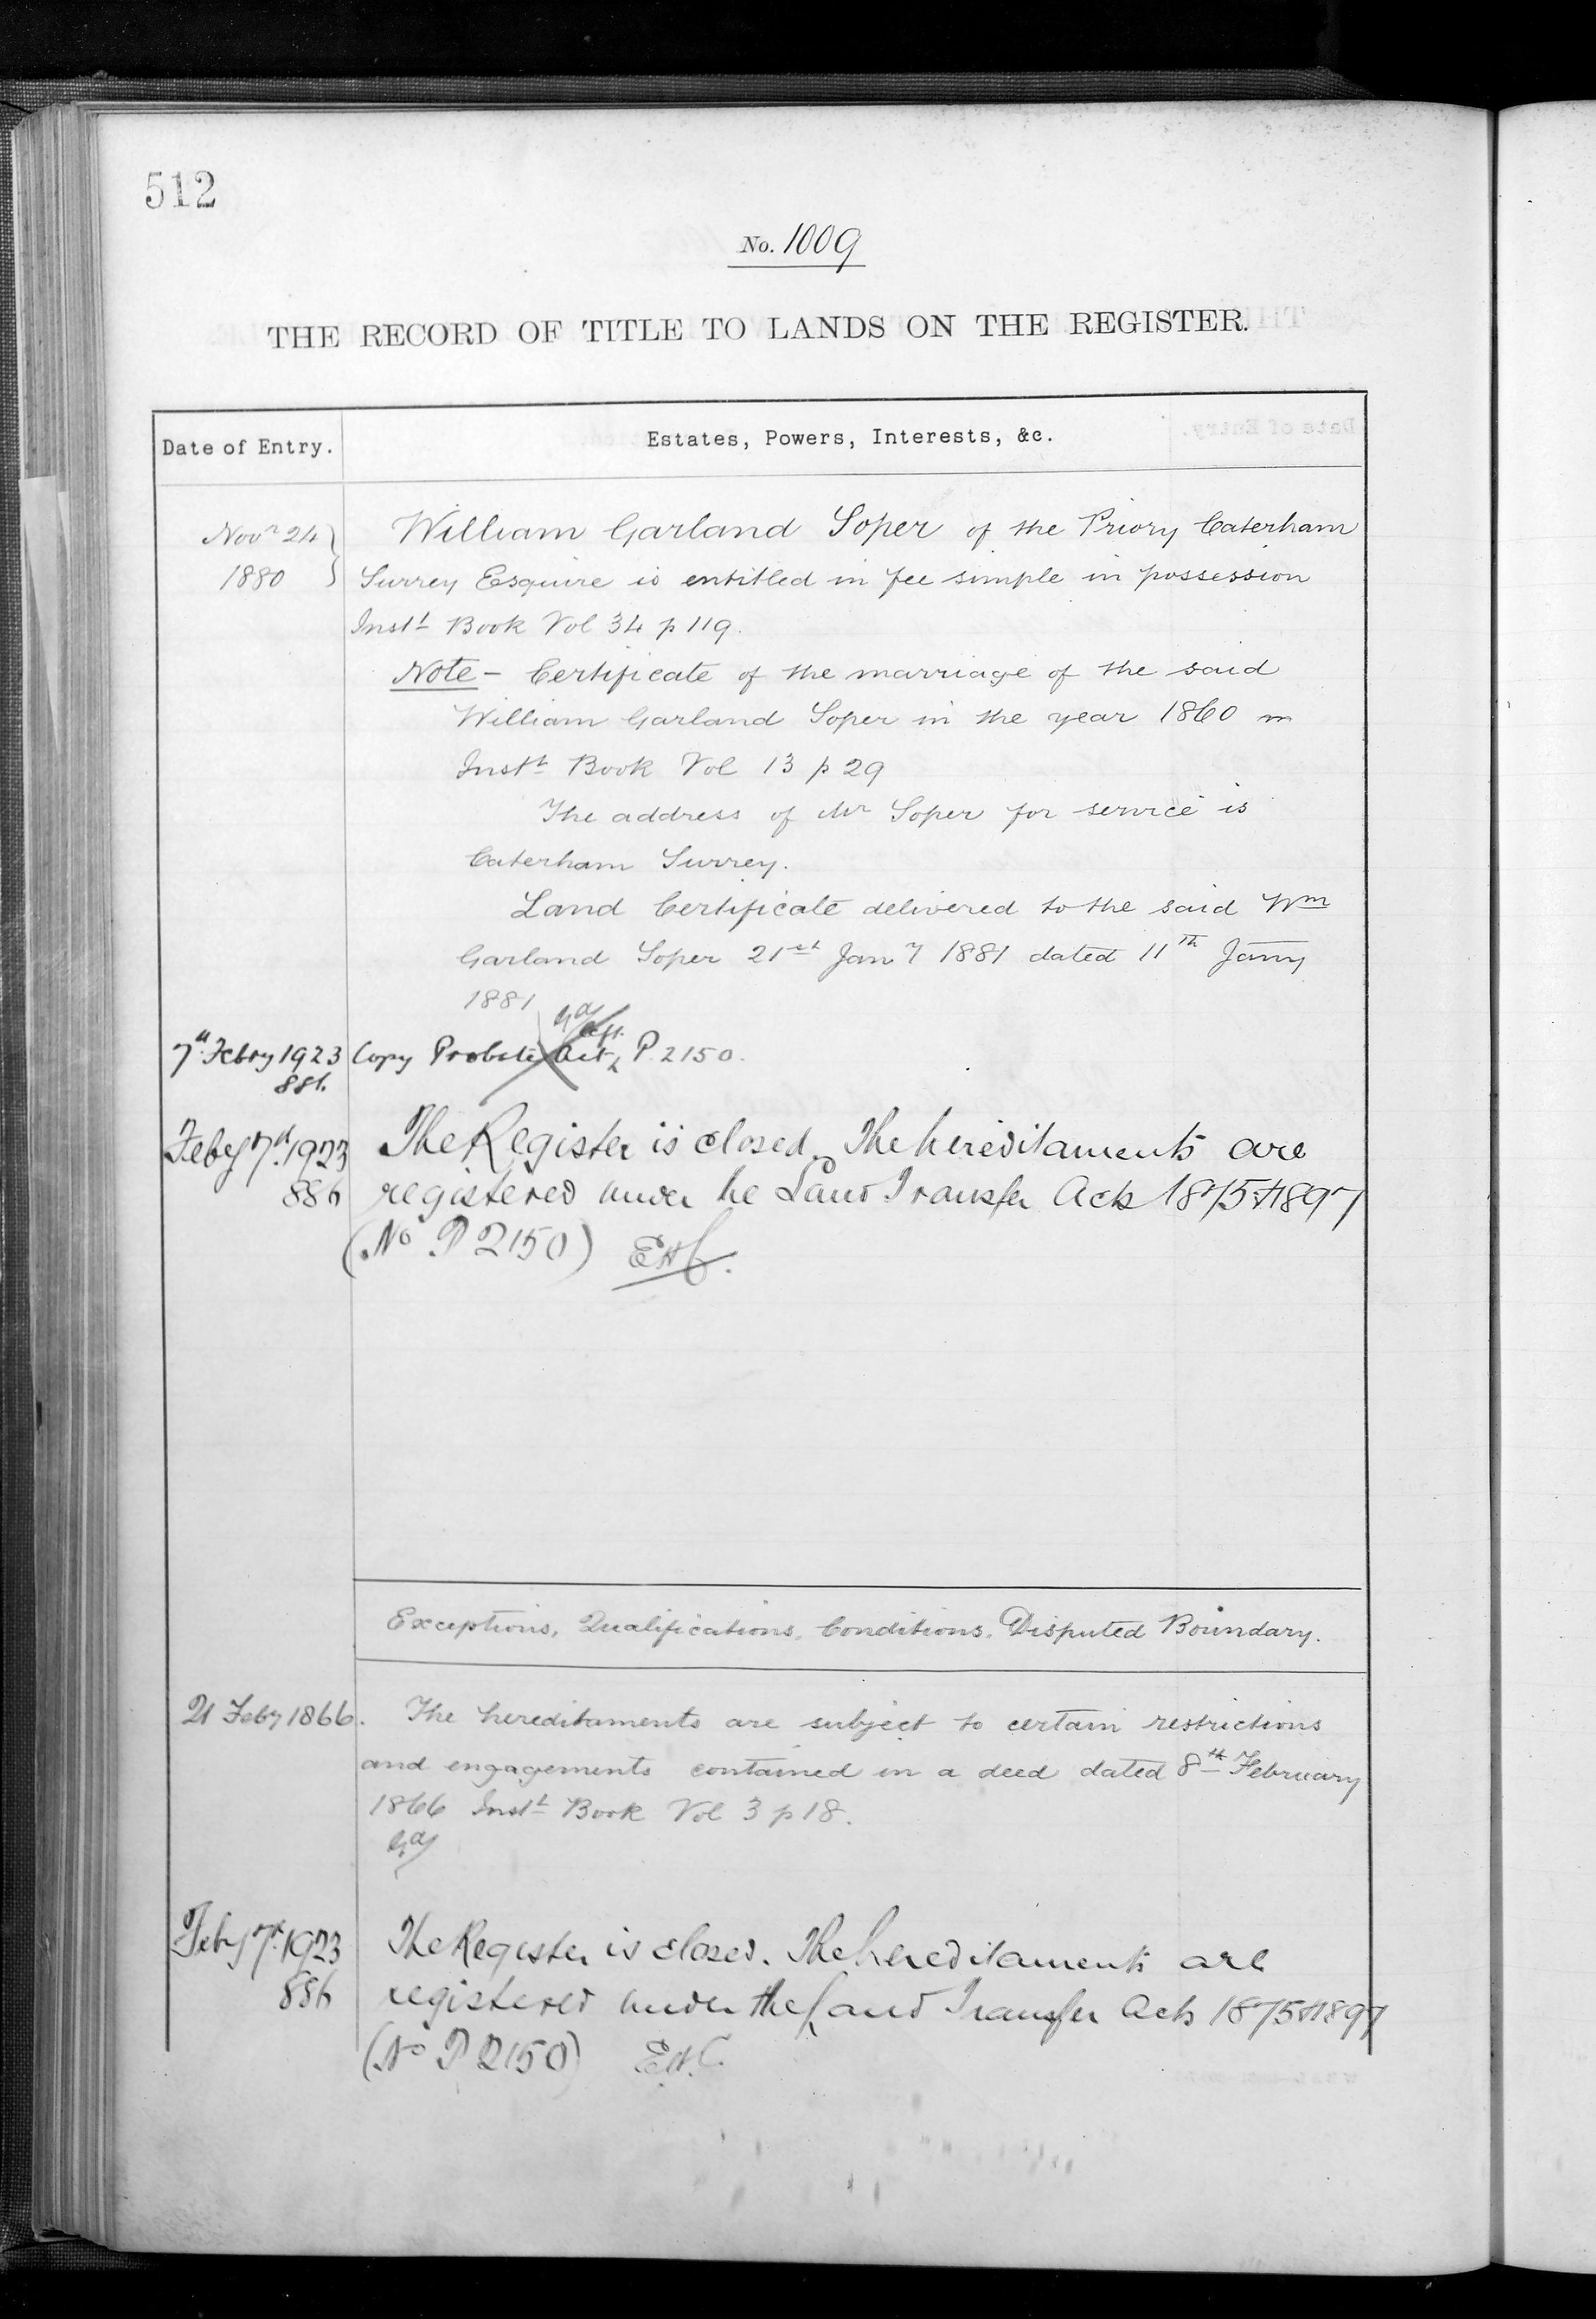 512
No. 1009
THE RECORD OF TITLE TO LANDS ON THE REGISTER.
Date of Entry. Estates, Powers, Interests, &c.
Novr 24 William Garland Soper of the Priory Caterham
1880 Surrey Esquire is entitled in fee simple in possession
Instt Book Vol 34 p 119.
Note - Certificate of the marriage of the said
William Garland Soper in the year 1860 in
Instt Book Vol 13 p 29
The address of Mr Soper for service is
Caterham Surrey.
Land Certificate delivered to the said Wm
Garland Soper 21st Jany 1881 dated 11th Jany
1881
7th Febry 1923 Copy Probate Act P. 2150.
886.
Feby 7th 1923 The Register is closed. The hereditaments are
886 registered under he Land Transfer Acts 1875 & 1897
(No P 2150) EHC.
Exceptions, Qualifications, Conditions, Disputed Boundary.
21 Feby 1866. The hereditaments are subject to certain restrictions
and engagements contained in a deed dated 8th February
1866 Instt Book Vol 3 p 18.
Feby 7th 1923 The Register is closed. The hereditaments are
886 registered under the Land Transfer Acts 1875 & 1897
(No P 2150) EHC.